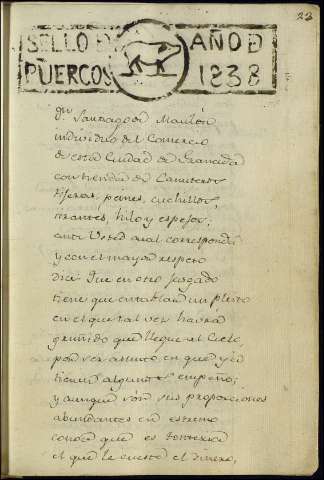 23
SELLO D AÑO D
PUERCOS 1838
Dn Santiago de
individuo del Comercio
de esta Ciudad de Granada
con tienda de
tijeras, peines, cuchillos,
tirantes, hilo y espejos,
ante Usted cual corresponde
y con el mayor respeto
dice: Que en este Juzgado
tiene que entablar un pleito
en el que tal vez habrá
gruñido que llegue al Cielo,
por ser asunto en que yá
tienen algunos empeño;
y aunque són sus proporciones
abundantes en estremo
conoce que es tontería
el que le cueste el dinero,